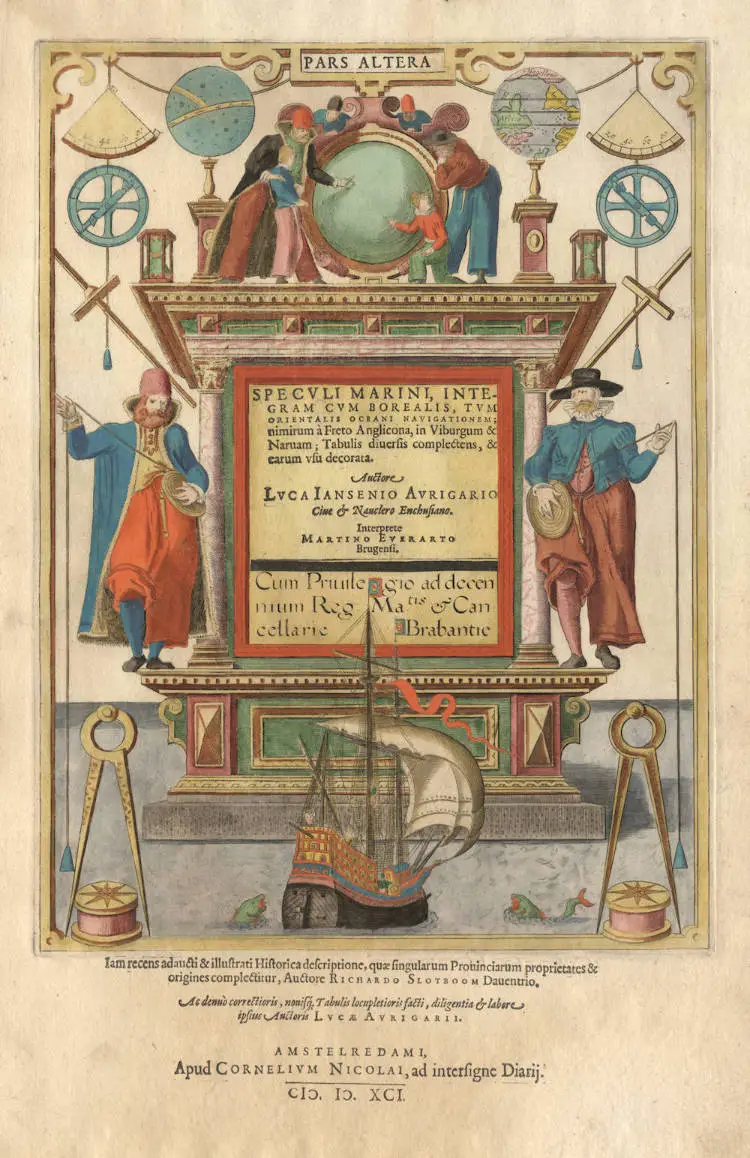 PARS ALTERA
SPECVLI MARINI, INTE-
GRAM CVM BOREALIS, TVM
ORIENTALIS OCEANI NAVIGATIONEM;
nimirum à Freto Anglicona, in Viburgum &
Naruam; Tabulis diuersis complectens, &
earum vsu decorata.
Auctore
LVCA IANSENIO AVRIGARIO
Ciue & Nauclero Enchusiano.
Interprete
MARTINO EVERARTO
Brugensi.
Cum Priuile gio ad decen
nium Reg Matis & Can
cellarie Brabantie
Iam recens adaucti & illustrati Historica descriptione, quæ singularum Prouinciarum proprietates &
origines complectitur, Auctore RICHARDO SLOTBOOM Dauentrio.
Ac denuò correctioris, nouisq, Tabulis locupletioris facti, diligentia & labore
ipsius Auctoris LVCÆ AVRIGARII.
AMSTELREDAMI,
Apud CORNELIVM NICOLAI, ad intersigne Diarij.
CIↃ. IↃ. XCI.